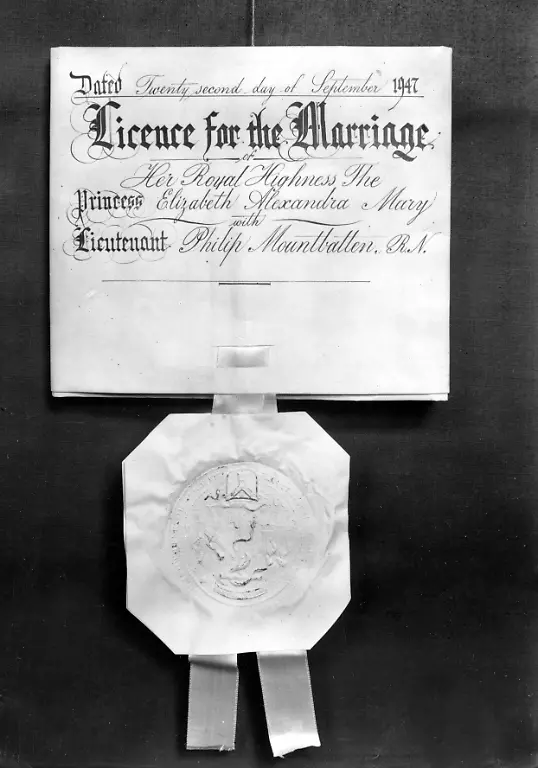 Dated Twenty second day of September 1947
Licence for the Marriage
of
Her Royal Highness The
Princess Elizabeth Alexandra Mary
with
Lieutenant Philip Mountbatten. R.N.